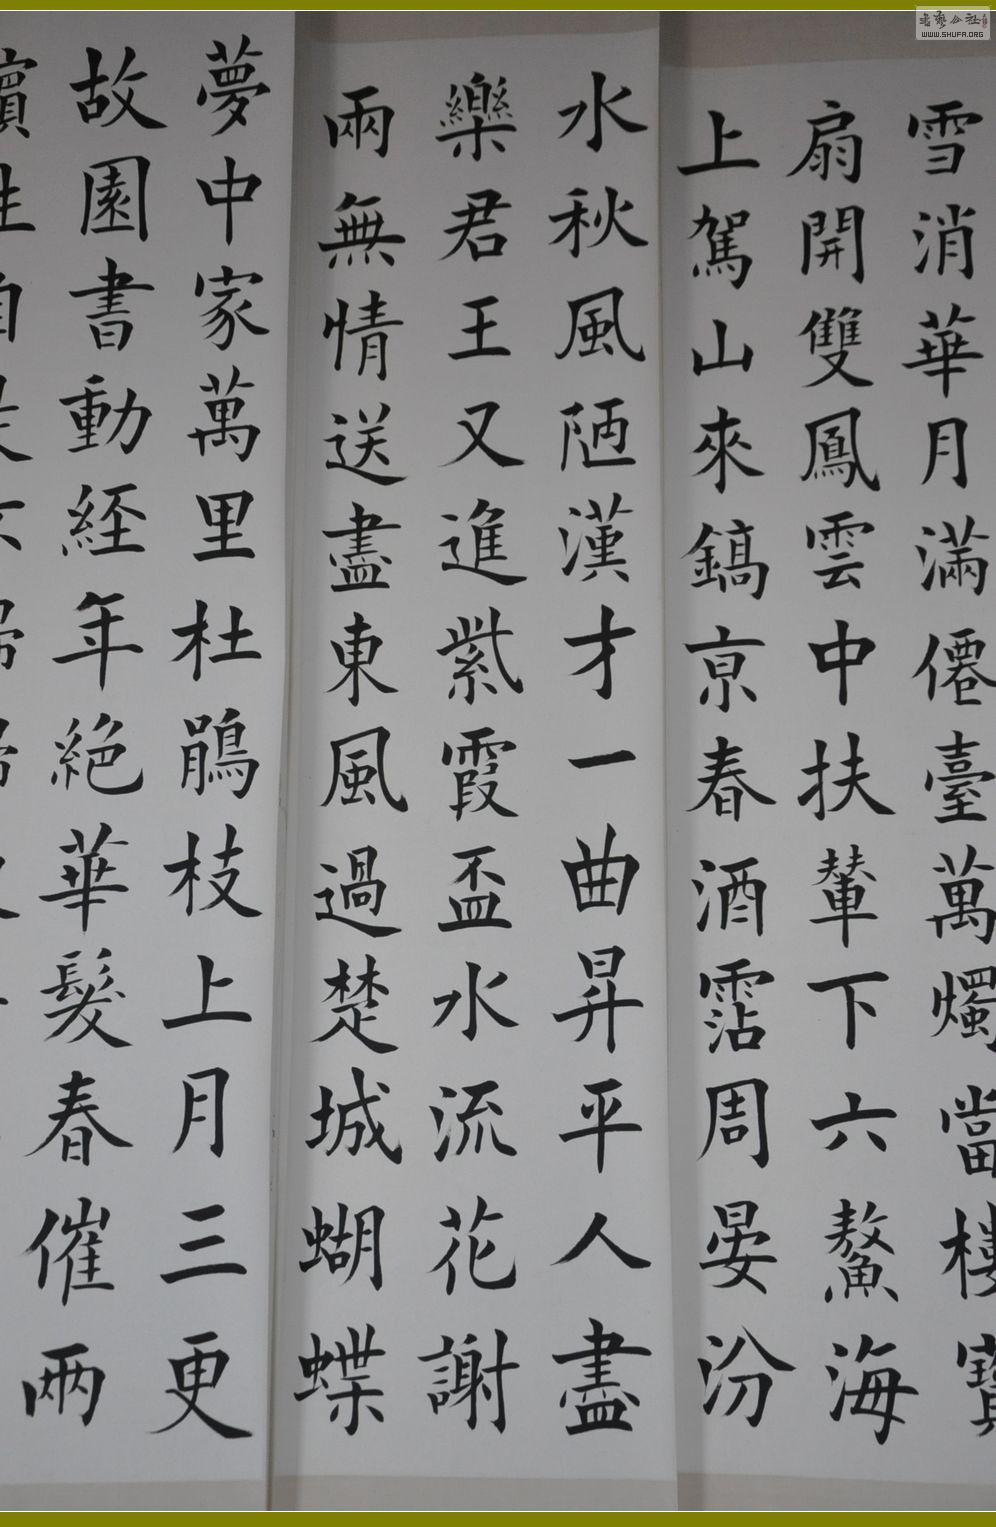 雪消華月滿僊臺萬燭當樓寶
扇開雙鳳雲中扶輦下六鰲海
上駕山來鎬亰春酒霑周晏汾
水秋風陋漢才一曲昇平人盡
樂君王又進紫霞盃水流花謝
兩無情送盡東風過楚城蝴蝶
夢中家萬里杜鵑枝上月三更
故園書動経年絶華髮春催兩
WWW.SHUFA.ORG